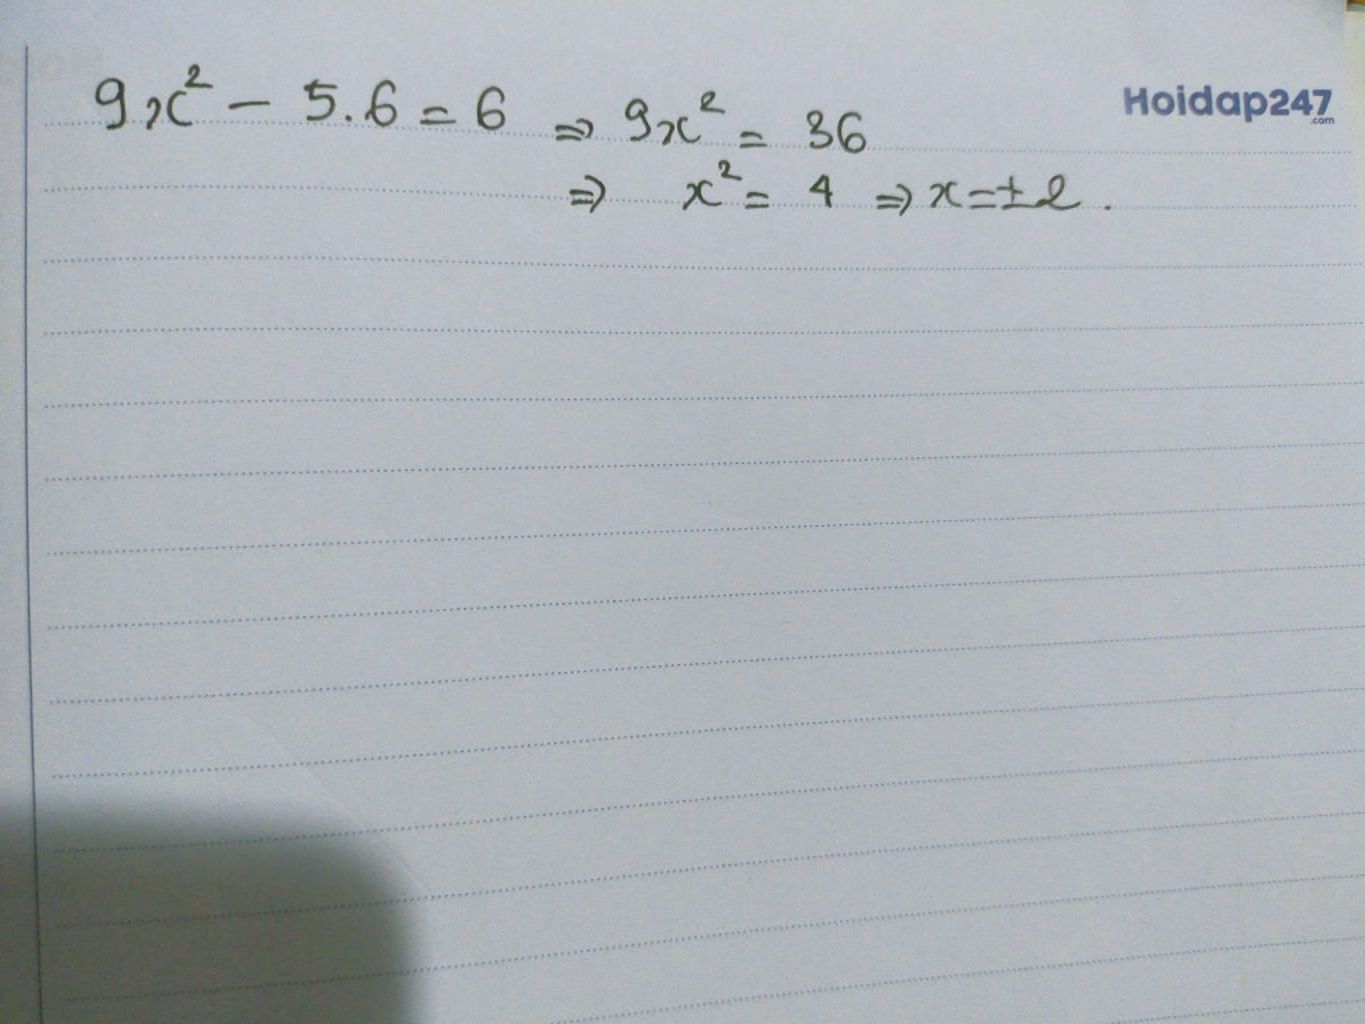 9x² - 5.6 = 6 ⇒ 9x² = 36
⇒ x² = 4 ⇒ x = ±2.
Hoidap247
.com